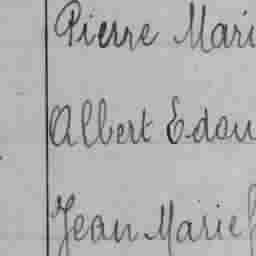 Pierre Mari
Albert Edou
Jean Marie